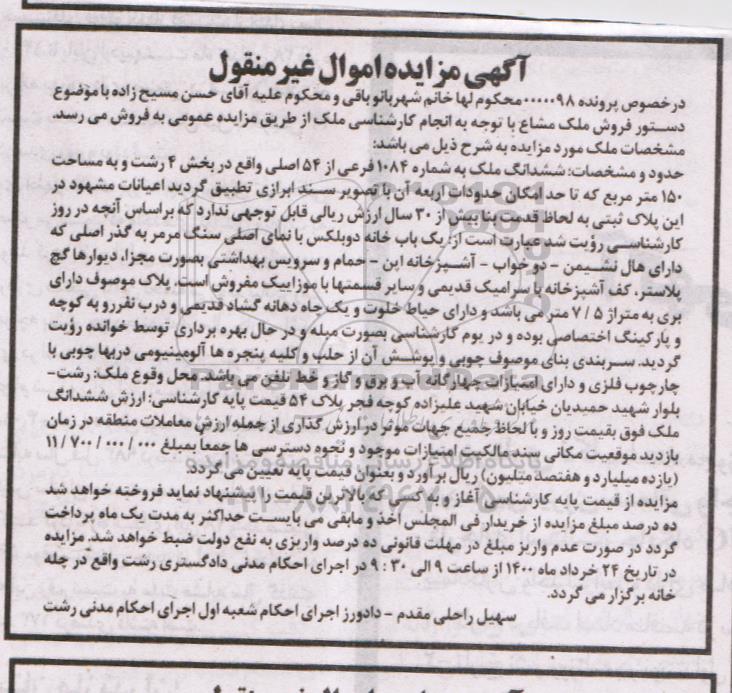 آگهی مزایده اموال غیر منقول
درخصوص پرونده ۹۸۰۰۰۰۰ محکوم لها خانم شهربانو باقی و محکوم علیه آقای حسن مسیح زاده با موضوع
دستور فروش ملک مشاع با توجه به انجام کارشناسی ملک از طریق مزایده عمومی به فروش می رسد.
مشخصات ملک مورد مزایده به شرح ذیل می باشد:
حدود و مشخصات: ششدانگ ملک به شماره ۱۰۸۴ فرعی از ۵۴ اصلی واقع در بخش ۴ رشت و به مساحت
۱۵۰ متر مربع که تا حد امکان محدودات اربعه آن با تصویر سند ابرازی تطبیق گردید اعیانات مشهود در
این پلاک ثبتی به لحاظ قدمت بنا بیش از ۳۰ سال ارزش ریالی قابل توجهی ندارد که براساس آنچه در روز
کارشناسی رؤیت شد عبارت است از: یک باب خانه دوبلکس با نمای اصلی سنگ مرمر به گذر اصلی که
دارای هال نشیمن - دو خواب - آشپزخانه اپن - حمام و سرویس بهداشتی بصورت مجزا، دیوارها گچ
پلاستر، کف آشپزخانه با سرامیک قدیمی و سایر قسمتها با موزاییک مفروش است. پلاک موصوف دارای
بری به متراژ ۷/۵ متر می باشد و دارای حیاط خلوت و یک چاه دهانه گشاد قدیمی و درب نفررو به کوچه
و پارکینگ اختصاصی بوده و در یوم کارشناسی بصورت مبله و در حال بهره برداری توسط خوانده رؤیت
گردید. سربندی بنای موصوف چوبی و پوشش آن از حلب و کلیه پنجره ها آلومینیومی دربها چوبی با
چارچوب فلزی و دارای امتیازات چهارگانه آب و برق و گاز و خط تلفن می باشد. محل وقوع ملک: رشت-
بلوار شهید حمیدیان خیابان شهید علیزاده کوچه فجر پلاک ۵۴ قیمت پایه کارشناسی: ارزش ششدانگ
ملک فوق بقیمت روز و با لحاظ جمیع جهات موثر در ارزش گذاری از جمله ارزش معاملات منطقه در زمان
بازدید موقعیت مکانی سند مالکیت امتیازات موجود و نحوه دسترسی ها جمعاً بمبلغ ۱۱/۷۰۰/۰۰۰/۰۰۰
(یازده میلیارد و هفتصد میلیون) ریال برآورد و بعنوان قیمت پایه تعیین می گردد.
مزایده از قیمت پایه کارشناسی آغاز و به کسی که بالاترین قیمت را پیشنهاد نماید فروخته خواهد شد
ده درصد مبلغ مزایده از خریدار فی المجلس اخذ و مابقی می بایست حداکثر به مدت یک ماه پرداخت
گردد در صورت عدم واریز مبلغ در مهلت قانونی ده درصد واریزی به نفع دولت ضبط خواهد شد. مزایده
در تاریخ ۲۴ خرداد ماه ۱۴۰۰ از ساعت ۹ الی ۹:۳۰ در اجرای احکام مدنی دادگستری رشت واقع در چله
خانه برگزار می گردد.
سهیل راحلی مقدم - دادورز اجرای احکام شعبه اول اجرای احکام مدنی رشت